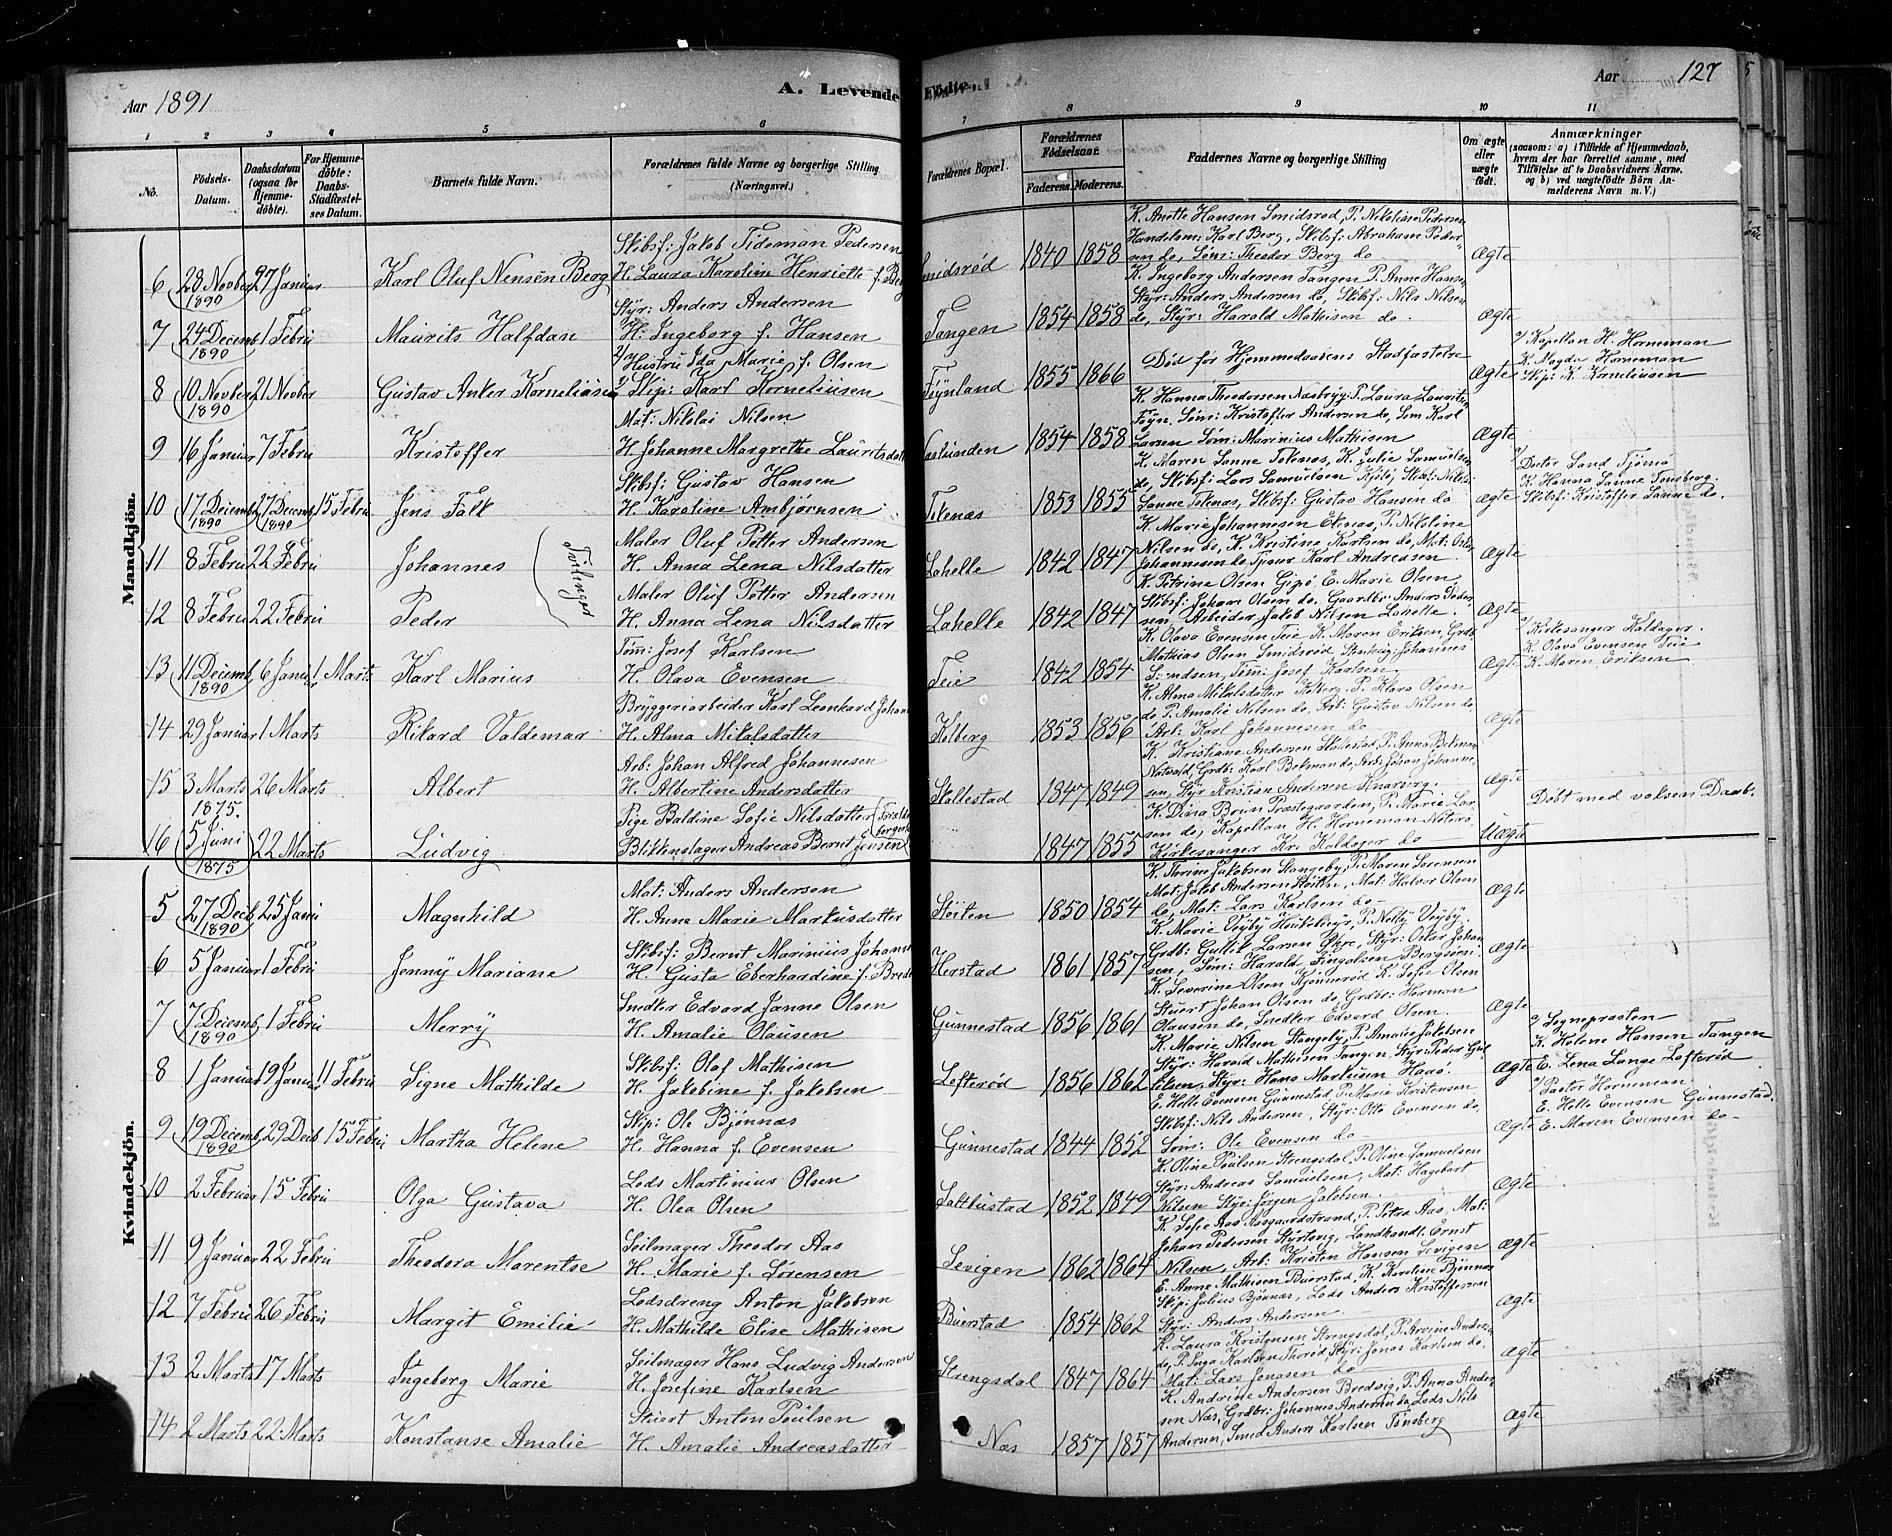 Aar 1891
A. Levende Fødte.
Aar 127
1 2 3 4 5 6 7 8 9 10 11
No.
Fødsels-Datum.
Daabsdatum (ogsaa for Hjemmedøbte).
For Hjemmedøbte: Daabs-Stadfæstelses Datum.
Barnets fulde Navn.
Forældrenes fulde Navne og borgerlige Stilling (Næringsvei.)
Forældrenes Bopæl.
Forældrenes Fødselsaar.
Faderens. Moderens.
Faddernes Navne og borgerlige Stilling
Om ægte eller uægte født.
Anmærkninger (saasom: a) i Tilfælde af Hjemmedaab, hvem der har forrettet samme, med Tilføielse af to Daabsvidners Navne, og b) ved uægtefødte Børn Anmelderens Navn m. V.)
Mandkjøn.
6 28 Novber 1890 27 Januar Karl Oluf Nensen Berg Skibsf: Jakob Tideman Pedersen H. Laura Karoline Henriette f. Berg Smidsrød 1840 1858 K. Anette Hansen Smidsrød, P. Nikoline Pedersen Handelsm: Karl Berg, Skibsf: Abraham Pedersen do, Søm: Theodor Berg do Ægte
7 24 Decemb 1890 1 Febru Maurits Halfdan Styr: Anders Andersen H: Ingeborg f. Hansen Tangen 1854 1858 K. Ingeborg Andersen Tangen P. Anne Hansen Styr: Anders Andersen do, Skibsf: Nils Nilsen do, Styr: Harald Mathisen do. Ægte
8 10 Novber 1890 21 Novber Gustav Anker Korneliusen 2/ Hustru Ida Marie f. Olsen 1/ Skip: Karl Korneliusen Føynland 1855 1866 Død før Hjemmedaabens Stadfæstelse Ægte 1/ Kapellan H. Horneman K. Magda Horneman Skip: K. Korneliusen
9 16 Januar 7 Febru Kristoffer Mat: Nikolai Nilsen H. Johanne Margrethe Lauritsdatt 1854 1858 K. Hanna Theodorsen Næsbryg: P. Laura Lauritsen Føyn, Søm: Kristoffer Andersen do, Søm Karl Larsen Søm: Marinius Mathisen Ægte
10 17 Decemb 1890 27 Decemb 1890 15 Febru Jens Falk Skibsf: Gustav Hansen H. Karoline Ambjørnsen Tokenæs 1853 1855 K. Maren Sanne Tokenæs, K. Julie Samuelsen do, Skibsf: Lars Samuelsen Sanne Tokenæs, Skibsf: Gustav Hansen do Ægte 1/ Doctor Sand Tjømø K. Hanna Sanne Tønsberg. Skibsf: Kristoffer Sanne do.
11 8 Febru 22 Febru Johannes Maler Oluf Petter Andersen H. Anna Lena Nilsdatter Lahelle 1842 1847 K. Marie Johannesen Ekenæs, P. Nikoline Nilsen do, K. Kristine Karlsen do, Mat: Oskar Johannesen do, Karl Andreasen Ægte
Tvilinger
12 8 Febru 22 Febru Peder Maler Oluf Petter Andersen H. Anna Lena Nilsdatter Lahelle 1842 1847 K. Petrine Olsen Gipø E. Marie Olsen Skibsf: Johan Olsen do, Gaardbr: Anders Pedersen, Arbeider Jakob Nilsen Lahelle. Ægte
13 11 Decemb 1890 6 Januar 1 Marts Karl Marius Tøm: Josef Karlsen H. Olava Evensen Teie 1842 1854 K. Olava Evensen Teie K. Maren Eriksen, Grdb. Mathias Olsen Smidsrød, Johannes Tøm: Josef Karlsen Ægte 1/ Kirkesanger Kaldager. K. Olava Evensen Teie K. Maren Eriksen
14 29 Januar 1 Marts Rikard Valdemar Bryggeriarbeider Karl Leonhard Johan H. Alma Mikalsdatter Kolberg 1853 1856 K. Alma Mikalsdatter Kolberg, P. Klara Olsen do, P. Amalie Nilsen do, Arb: Gustav Nilsen do Arb: Karl Johannesen do Ægte
15 3 Marts 26 Marts Albert Arb: Johan Alfred Johannesen H. Albertine Andersdatter Skallestad 1847 1849 K. Kristiane Andersen Skallestad, P. Anna Bekman Grdb: Karl Bekman do, Arb: Johan Johannesen, Styr Kristian Andersen Knarberg. Ægte
16 1875. 5 Juni 1875 22 Marts Ludvig Pige Baldine Sofie Nilsdatter Blikkenslager Andreas Bernt Jensen 1847 1855 K. Dina Brun Præstegaarden, P. Marie Larsen do, Kapellan H. Horneman Nøterø Kirkesanger Kr. Kaldager do Uægte Døbt med voksen Daab.
Kvindekjøn.
5 27 Decb 1890 25 Janu Magnhild Mat: Anders Andersen H. Anne Marie Markusdatter Støiten 1850 1854 K. Thrine Jakobsen Stangeby, P. Maren Sørensen Mat: Jakob Andersen Støiten, Mat: Halvor Olsen do, Mat: Lars Karlsen do Ægte
6 5 Januar 1 Febru Jenny Mariane Skibsf: Bernt Marinius Johann H. Gusta Eberhardine f. Bred Herstad 1861 1857 K. Marie Veyby P. Nelly Veyby, Grdb: Gullik Larsen Økre, Styr: Oskar Johansen, Søm: Harald Ingolsen Ægte
7 7 Decemb 1890 1 Febru Merry Snedker Edvard Janne Olsen H. Amalie Olausen Gunnestad 1856 1861 K. Severine Olsen Kjønnerød K. Sofie Olsen Stuert Johan Olsen do, Grdbr: Herman Olausen do, Snedker Edvard Olsen. Ægte
8 1 Januar 19 Januar 11 Febru Signe Mathilde Skibsf: Olaf Mathisen H. Jakobine f. Jakobsen Lofterød 1856 1862 K. Marie Nilsen Stangeby, P. Amalie Jakobsen Styr: Harald Mathisen Tangen, Styr: Peder Gulliksen, Styr: Hans Markusen Ægte 1/ Sognepræsten K. Helene Hansen Tangen E. Lena Lange Lofterød
9 19 Decemb 1890 29 Decb 15 Febru Martha Helene Skip: Ole Bjønnæs H. Hanna f. Evensen Gunnestad 1844 1852 E. Helle Evensen Gunnestad, P. Marie Kristensen Skibsf: Nils Andersen, Styr: Otto Evensen do, Søm: Ole Evensen do Ægte 1/ Pastor Horneman. E. Helle Evensen Gunnestad. E. Maren Evensen do
10 2 Februar 15 Febru Olga Gustava Lods Martinius Olsen H. Olea Olsen Saltbustad 1852 1849 K. Oline Poulsen Strengsdal, P. Oline Samuelsen Styr: Andreas Samuelsen, Mat: Hagebart Nilsen Styr: Jørgen Jakobsen. Ægte
11 9 Januar 22 Febru Theodora Marentse Seilmager Theodor Aas H. Marie f. Sørensen Sevigen 1862 1864 K. Sofie Aas Aasgaardstrand, P. Petra Aas, Mat: Johan Pedersen Landhandl. Ernst Nilsen, Arb: Kristen Hansen Sevigen Ægte
12 7 Febru 26 Febru Margit Emilie Lodsdreng Anton Jakobsen H. Mathilde Elise Mathisen Buerstad 1854 1862 E. Anne Mathisen Buerstad, K. Karoline Bjønnæs Skip: Julius Bjønnæs, Lods Anders Kristoffersen Styr: Anders Andersen. Ægte
13 2 Marts 17 Marts Ingeborg Marie Seilmager Hans Ludvig Andersen H. Josefine Karlsen Strengsdal 1847 1864 K. Laura Kristensen Strengsdal, P. Arvine Andersen do, P. Inga Karlsen Thorød, Styr: Jonas Karlsen do, Mat: Lars Jonasen do Ægte
14 2 Marts 22 Marts Konstanse Amalie Stuert Anton Poulsen H. Amalie Andreasdatter Næs 1857 1857 K. Andrine Andersen Bredvig, P. Anna Andersen Næs, Grdbr: Johannes Andersen do, Lods Nils Andersen, Smed Anders Karlsen Tønsberg Ægte